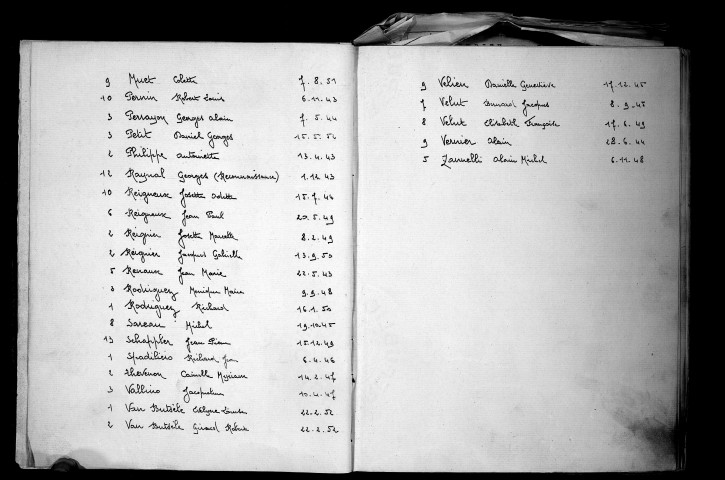 9 Muet Colette 7.8.51
10 Pernin Robert Louis 6.11.43
3 Perrayon Georges Alain 7.5.44
3 Petit Daniel Georges 15.5.52
2 Philippe Antoinette 13.4.43
12 Raynal Georges (Reconnaissance) 1.12.43
10 Reigneux Josette Odette 15.7.44
6 Reigneux Jean Paul 20.5.49
2 Reignier Josette Marcelle 8.2.49
2 Reignier Jacques Gabrielle 13.9.50
5 Renaux Jean Marie 22.5.43
3 Rodriguez Monique Marie 9.9.48
1 Rodriguez Richard 16.1.50
8 Sareau Michel 19.10.45
13 Schappler Jean Pierre 15.12.49
1 Spadiliero Richard Jean 6.4.46
2 Thevenon Camille Myriam 14.2.47
3 Vallino Jacqueline 10.4.47
1 Van Butsèle 22.2.52
2 Van Butsèle Gérard 22.2.52
9 Velien Danielle Geneviève 17.12.45
7 Velut Bernard Jacques 8.9.45
8 Velut Elisabeth Françoise 17.6.49
9 Vernier Alain 28.6.44
5 Zannelli Alain Michel 6.11.48